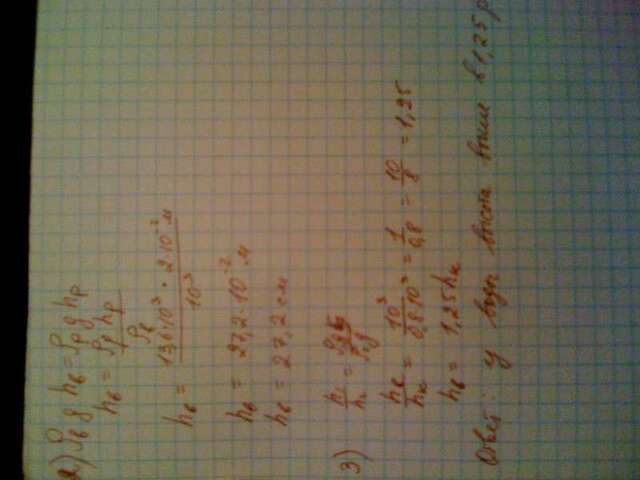 2) ρв g hв = ρр g hр
hв = ρр hр / ρв
hв = 13,6·10³ · 2·10⁻² м / 10³
hв = 27,2·10⁻² м
hв = 27,2 см
3) h₁/h₂ =
hв/hк = 10³/0,8·10³ = 1/0,8 = 10/8 = 1,25
hв = 1,25 hк
Ответ: у воды высота выше в 1,25 р